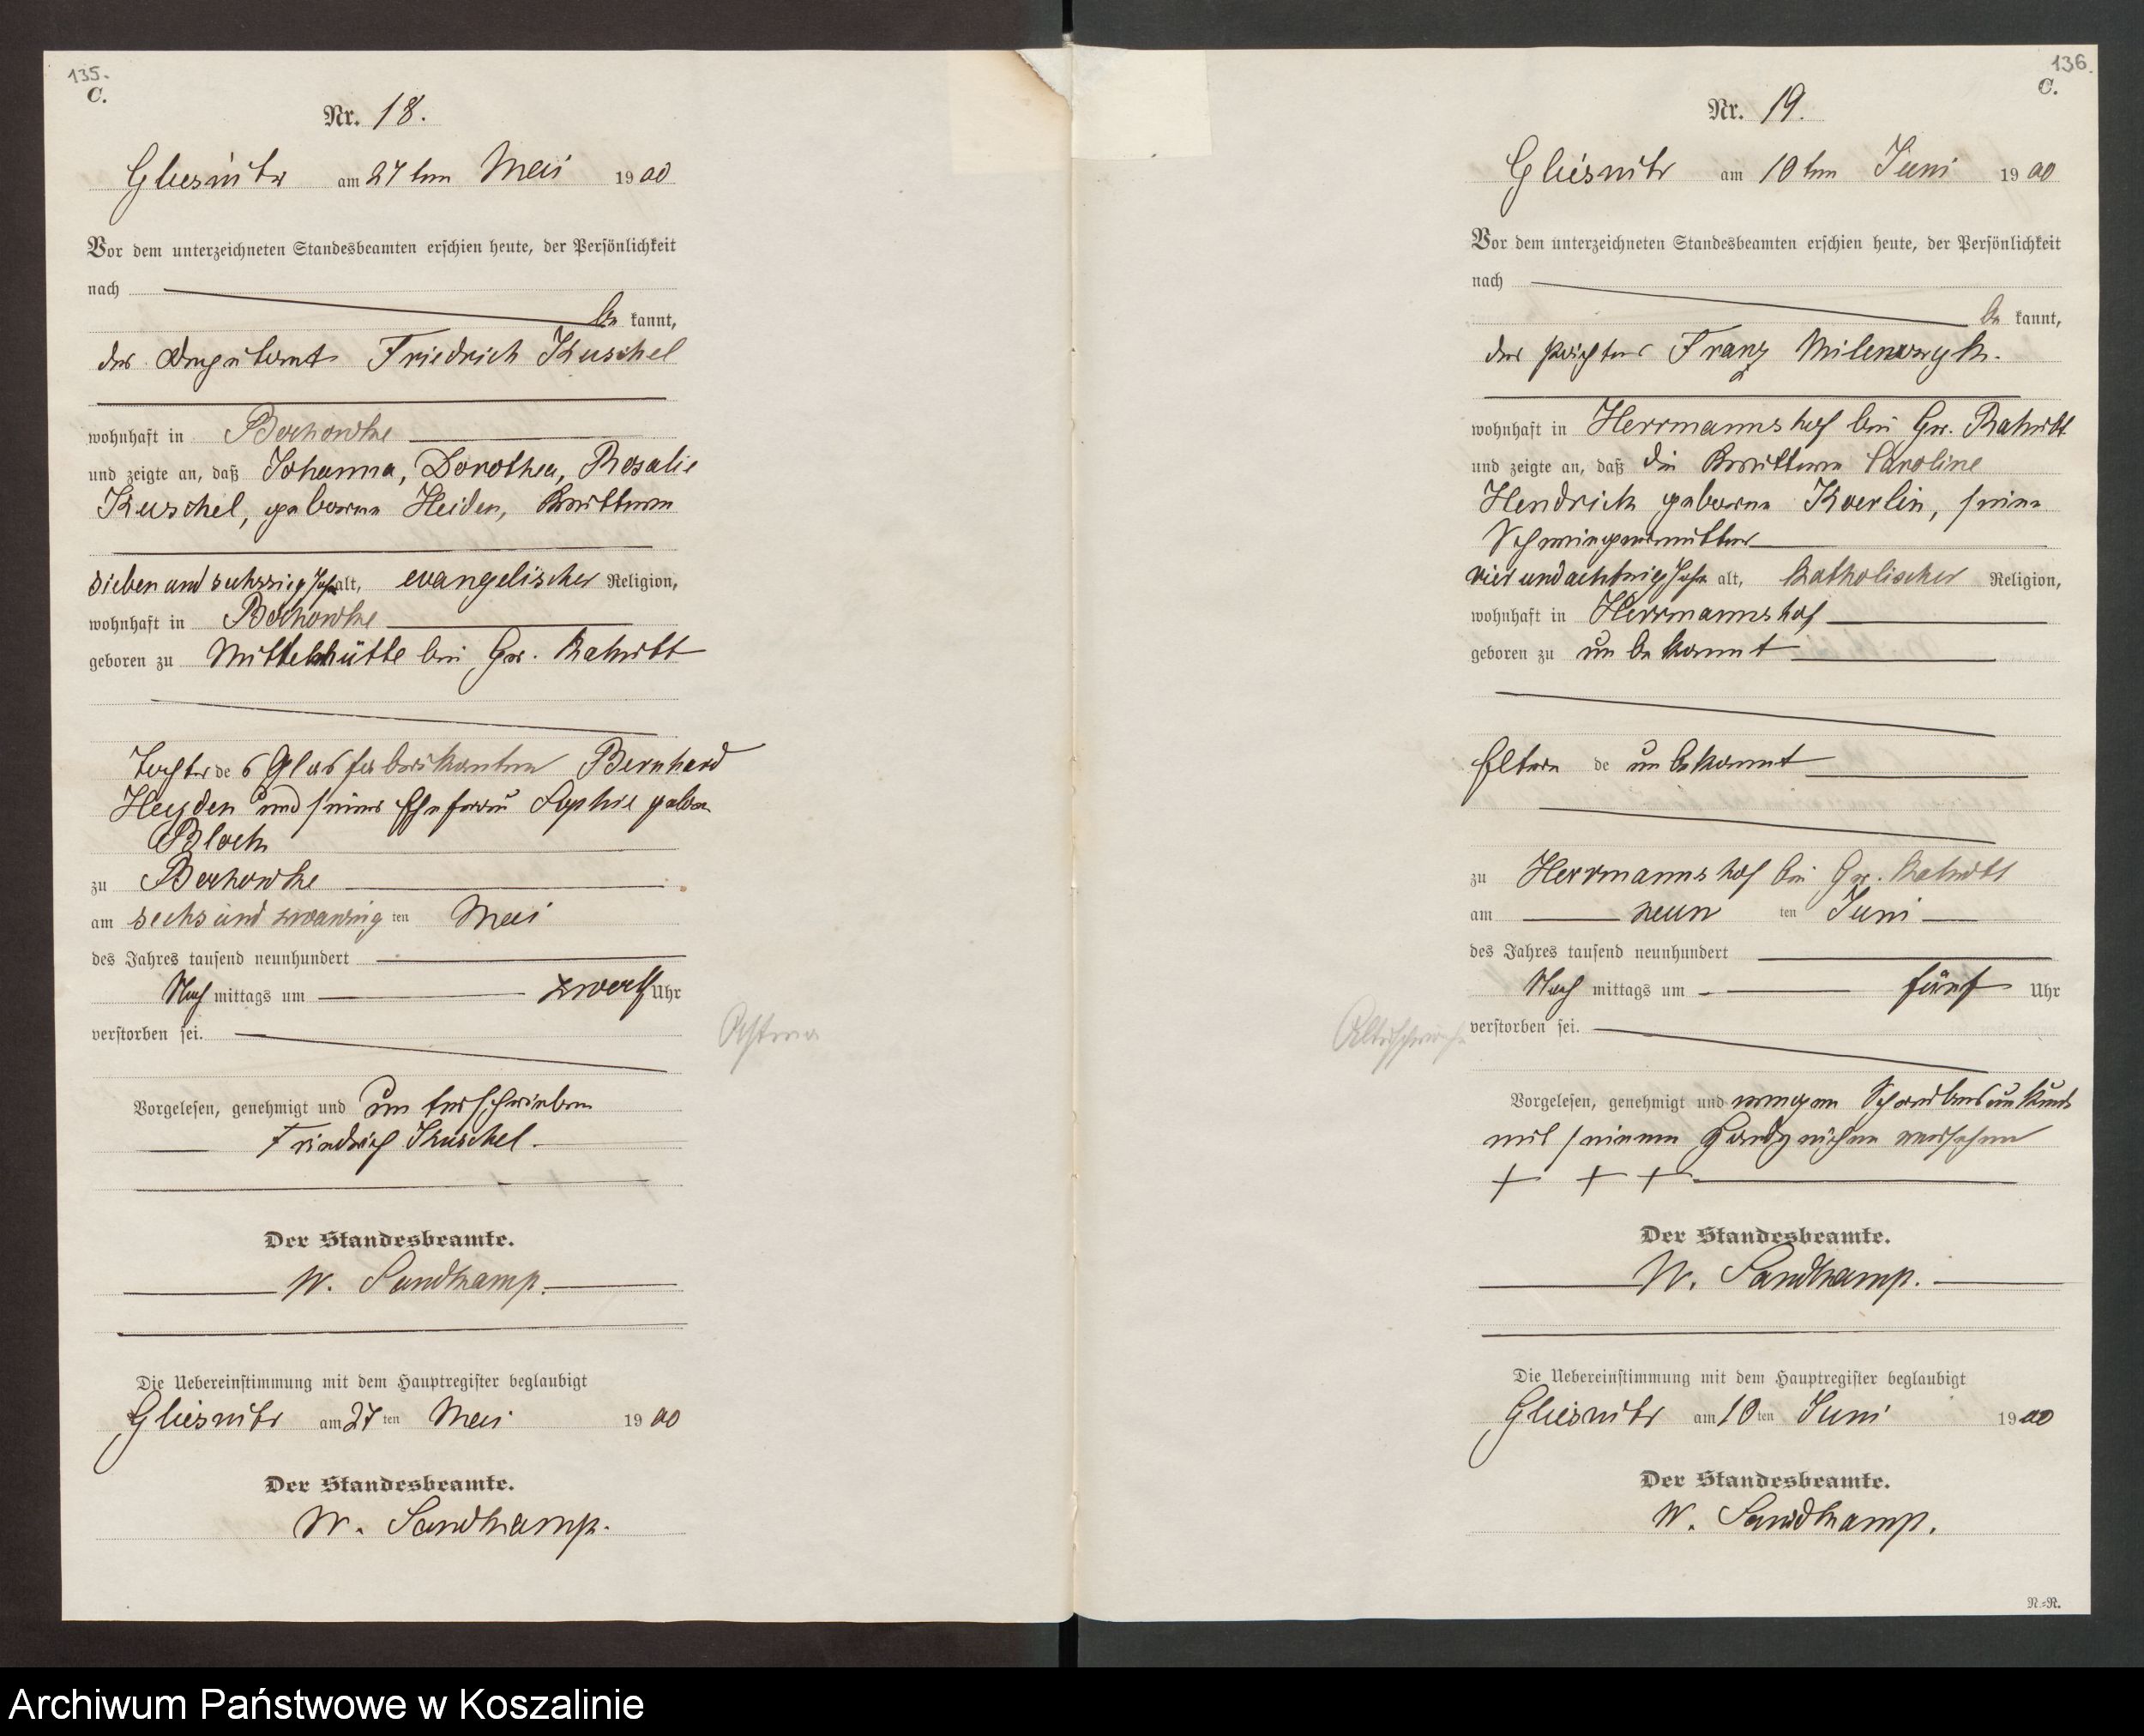 135.
C.
Nr. 18.
Gliesnitz am 27ten Mai 1900
Vor dem unterzeichneten Standesbeamten erschien heute, der Persönlichkeit
nach
be kannt,
der Friedrich Kuschel
wohnhaft in
und zeigte an, daß Johanna, Dorothea, Rosalie
Kuschel, geborene Heiden, Wittwe
sieben und sechszig Jahr alt, evangelischer Religion,
wohnhaft in
geboren zu Mittelhütte bei Gr. Rakitt
Tochter des Glasfabrikanten Bernhard
Heyden und seiner Ehefrau Sophie gebor.
Block
zu
am sechs und zwanzig ten Mai
des Jahres tausend neunhundert
Nach mittags um zwölf Uhr
verstorben sei.
Asthma
Vorgelesen, genehmigt und unterschrieben
Friedrich Kuschel.
Der Standesbeamte.
W. Sandkamp.
Die Uebereinstimmung mit dem Hauptregister beglaubigt
Gliesnitz am 27 ten Mai 1900
Der Standesbeamte.
W. Sandkamp.
136.
C.
Nr. 19.
Gliesnitz am 10ten Juni 1900
Vor dem unterzeichneten Standesbeamten erschien heute, der Persönlichkeit
nach
be kannt,
der Pächter Franz
wohnhaft in Herrmannshof bei Gr. Rakitt
und zeigte an, daß die Wittwe Caroline
Hendrich geborene Koerlin, seine
Schwiegermutter
vier und achtzig Jahr alt, katholischer Religion,
wohnhaft in Herrmannshof
geboren zu unbekannt
Eltern de unbekannt
zu Herrmannshof bei Gr. Rakitt
am neun ten Juni
des Jahres tausend neunhundert
Nach mittags um fünf Uhr
verstorben sei.
Altersschwäche
Vorgelesen, genehmigt und wegen Schreibensunkunde
mit seinem Handzeichen versehen
+ + +
Der Standesbeamte.
W. Sandkamp.
Die Uebereinstimmung mit dem Hauptregister beglaubigt
Gliesnitz am 10 ten Juni 1900
Der Standesbeamte.
W. Sandkamp.
N.=R.
Archiwum Państwowe w Koszalinie